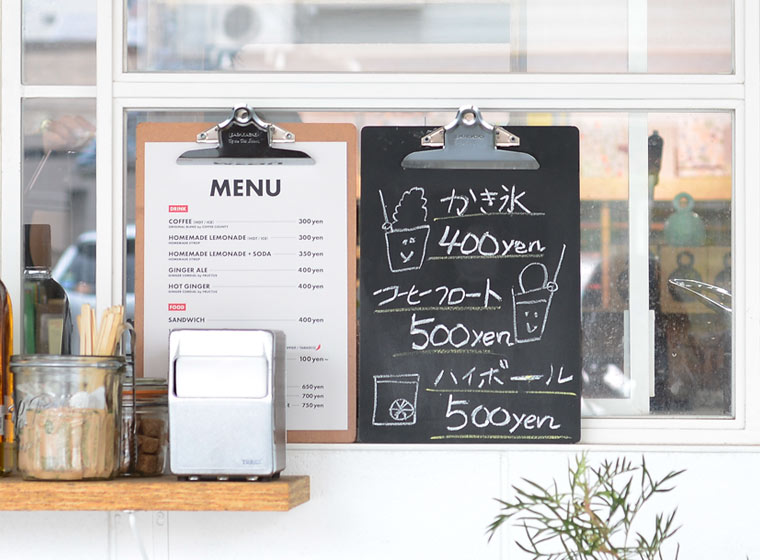 MENU
DRINK
COFFEE (HOT / ICE) 300 yen
HOMEMADE LEMONADE (HOT / ICE) 300 yen
HOMEMADE SYRUP
HOMEMADE LEMONADE + SODA 350 yen
HOMEMADE SYRUP
GINGER ALE 400 yen
HOT GINGER 400 yen
FOOD
SANDWICH 400 yen
100 yen~
650 yen
700 yen
750 yen
かき氷
400yen
コーヒーフロート
500yen
ハイボール
500yen